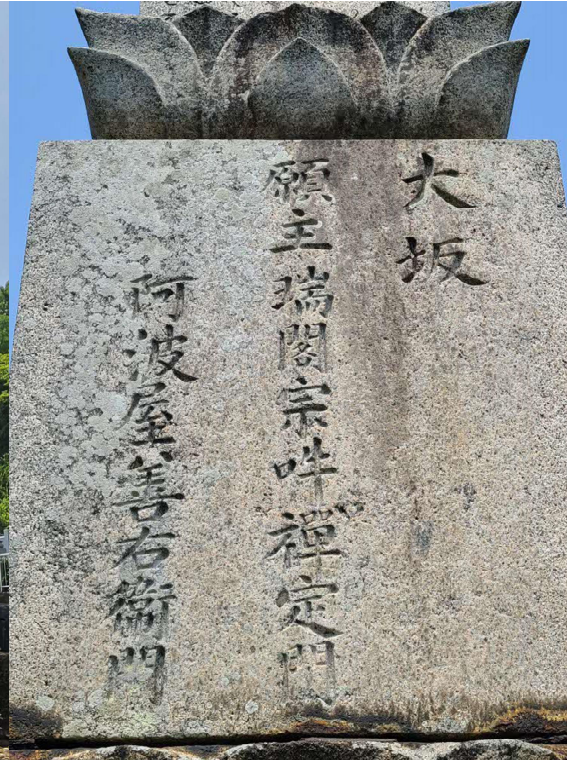 大坂
願主瑞閣宗吽禅定門
阿波屋善右衛門